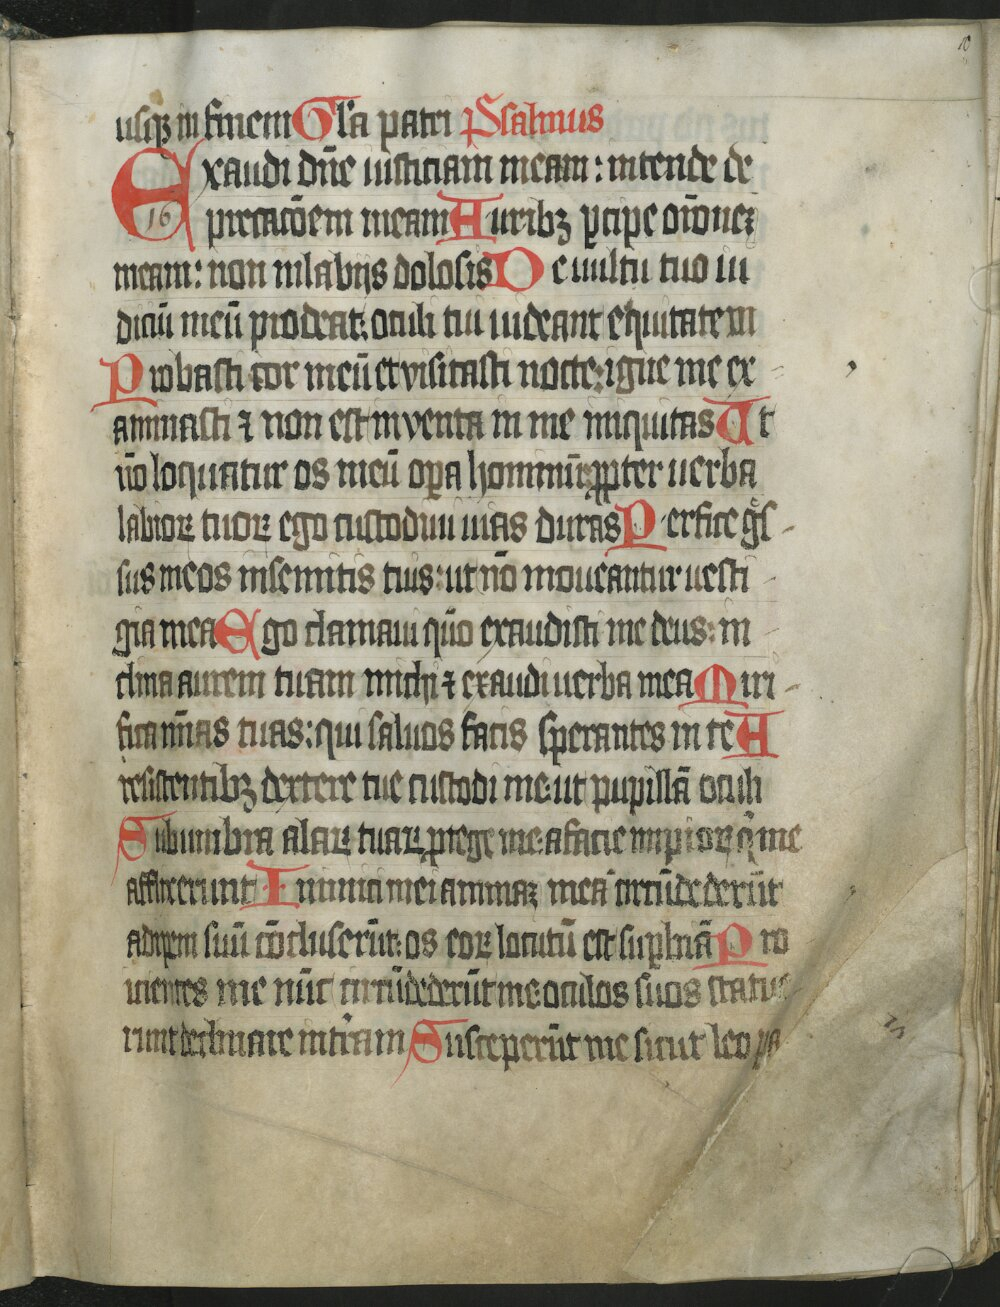 10
usqꝫ in finem Gl'a patri Psalmus
Exaudi dn̄e iusticiam meam: intende de
16
precac̄oem meam Auribꝫ ꝑcipe or̄onez
meam: non in labijs dolosis De uultu tuo iu
diciū meū prodeat: oculi tui uideant equitatem
Probasti cor meū et visitasti nocte: igne me ex
aminasti ⁊ non est inventa in me iniquitas Ut
nō loquatur os meū oꝑa hominū: ꝓpter uerba
labioꝝ tuoꝝ ego custodiui uias duras Perfice gͤs
sus meos in semitis tuis: ut nō moueantur uesti
gia mea Ego clamaui qūo exaudisti me deus: in
clina aurem tuam michi ⁊ exaudi uerba mea Miri
fica m̄ias tuas: qui saluos facis sperantes in te A
resistentibꝫ dextere tue custodi me: ut pupillā oculi
Sub umbra alaꝝ tuaꝝ ꝓtege me: a facie impioꝝ q̄ me
afflixerunt Inimici mei animaz meā circūdederūt
adipem suū cōcluserūt: os eoꝝ locutū est suꝑbiā Pro
icientes me nūc circūdederūt me: oculos suos statue
runt declinare in t'ram Susceperūt me sicut leo pa